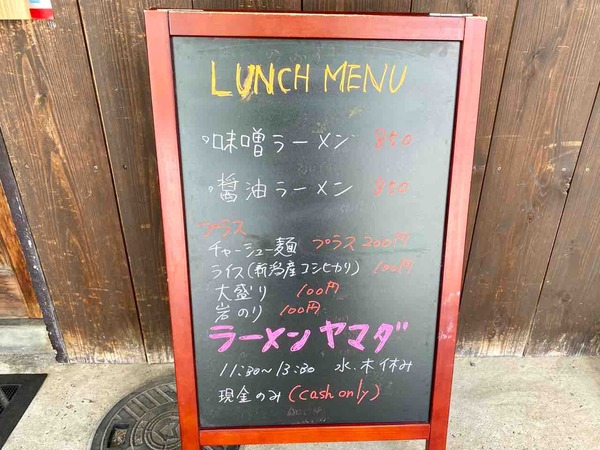 LUNCH MENU
味噌ラーメン 850
醤油ラーメン 850
プラス
チャーシュー麺 プラス200円
ライス(新潟産コシヒカリ) 100円
大盛り 100円
岩のり 100円
ラーメン ヤマダ
11:30~13:30 水、木休み
現金のみ (cash only)